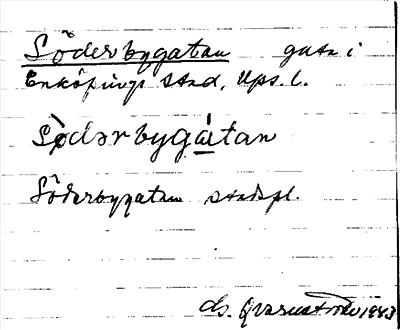 Söderbygatan gata i
Enköpings stad, Ups. l.
Sö̀dərbygá̲tan
Söderbygatan stadspl.
ds. Qvarnström 1943